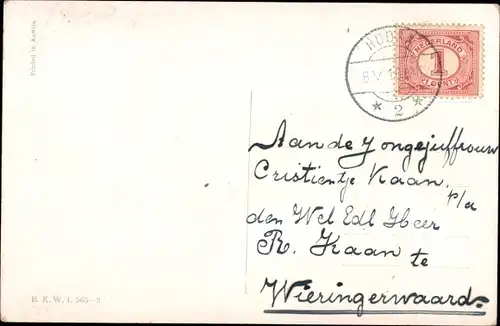 Printed in Austria
NEDERLAND
1
CENT
2
Aan de Jongejuffrouw
Cristientje Kaan.
p/a
den Wel Edl Heer
R. Kaan te
Wieringerwaard.
B. K. W. I. 565-3